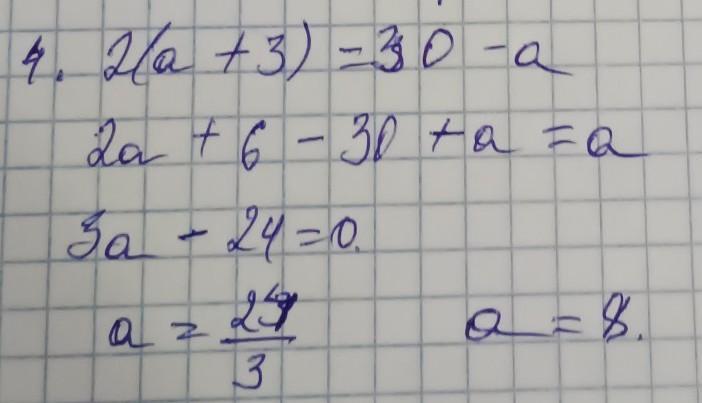 4. 2(a + 3) = 30 - a
2a + 6 - 30 + a = a
3a - 24 = 0.
a = 24/3 a = 8.